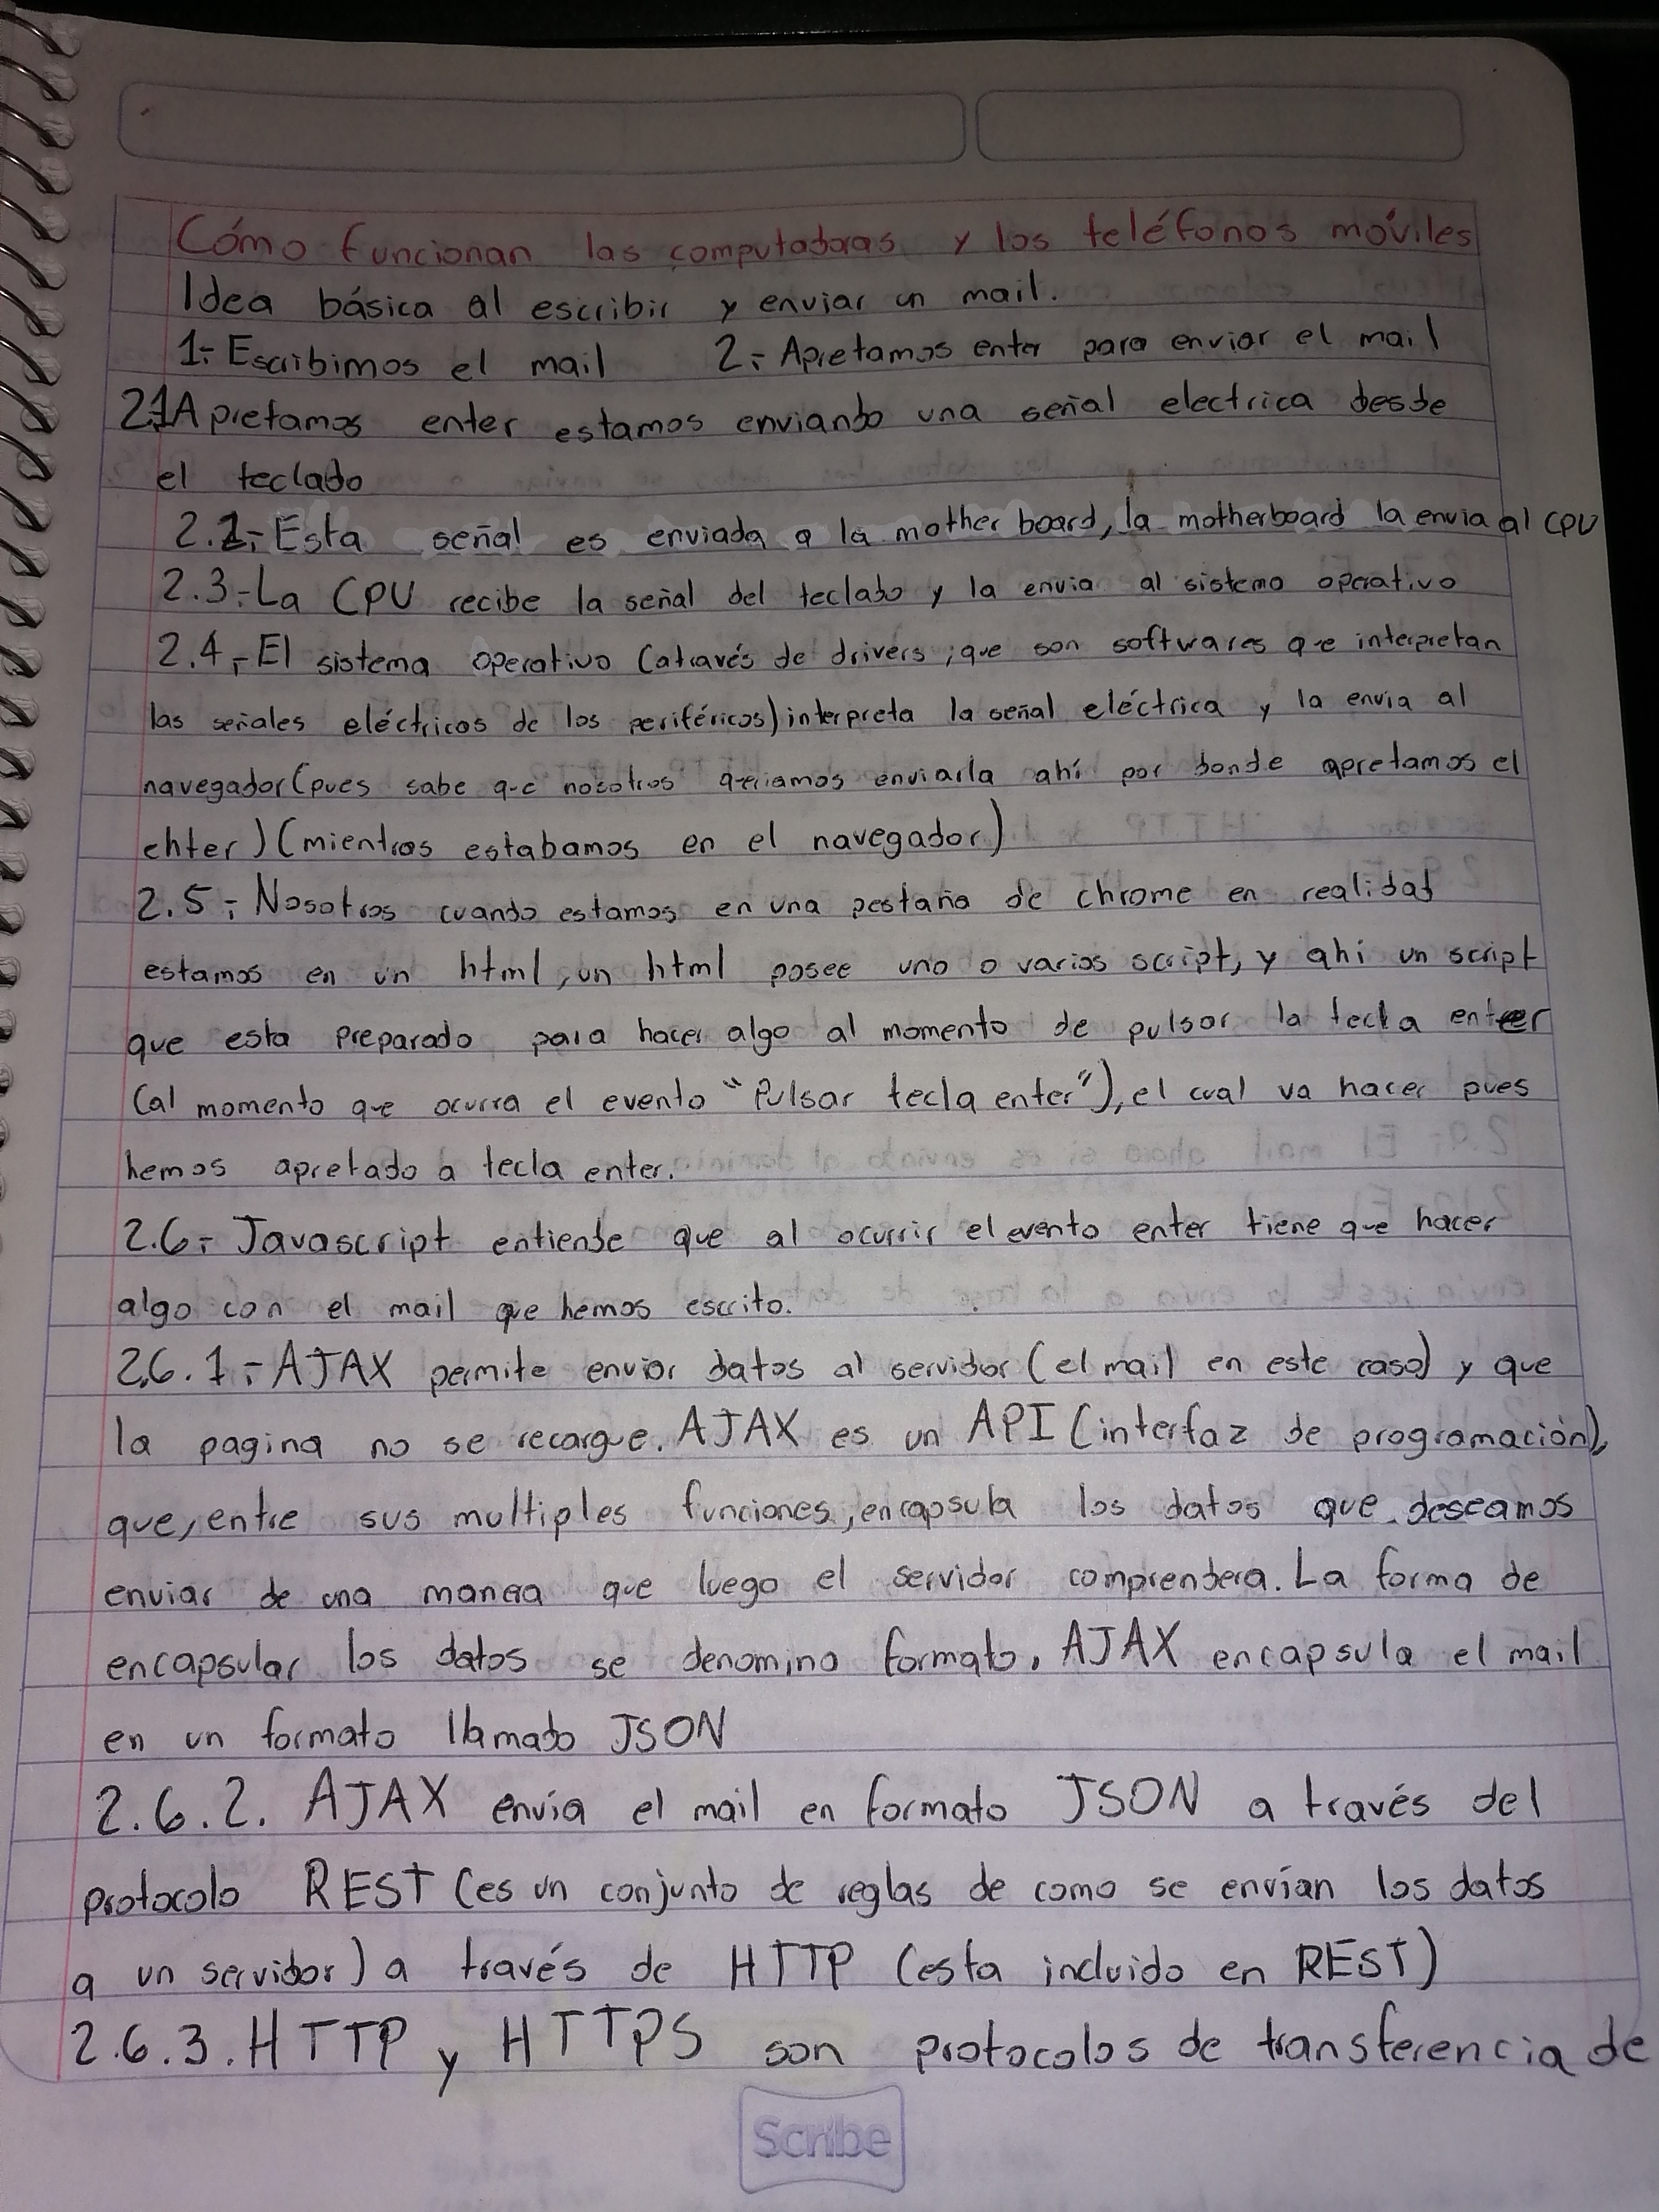 Cómo funcionan las computadoras y los teléfonos móviles
Idea básica al escribir y enviar un mail.
1.- Escribimos el mail 2.- Apretamos enter para enviar el mail
2.1 Apretamos enter estamos enviando una señal electrica desde
el teclado
2.2.- Esta señal es enviada a la mother board, la motherboard la envia al CPU
2.3.- La CPU recibe la señal del teclado y la envia al sistema operativo
2.4.- El sistema operativo (através de drivers, que son softwares que interpretan
las señales eléctricas de los periféricos) interpreta la señal eléctrica y la envia al
navegador (pues sabe que nosotros queriamos enviarla ahí por donde apretamos el
enter) (mientras estabamos en el navegador)
2.5.- Nosotros cuando estamos en una pestaña de chrome en realidad
estamos en un html, un html posee uno o varios script, y ahí un script
que esta preparado para hacer algo al momento de pulsar la tecla enter
(al momento que ocurra el evento "Pulsar tecla enter"), el cual va hacer pues
hemos apretado a tecla enter.
2.6.- Javascript entiende que al ocurrir el evento enter tiene que hacer
algo con el mail que hemos escrito.
2.6.1.- AJAX permite enviar datos al servidor (el mail en este caso) y que
la pagina no se recargue. AJAX es un API (interfaz de programación),
que, entre sus multiples funciones, encapsula los datos que deseamos
enviar de una manera que luego el servidor comprendera. La forma de
encapsular los datos se denomina formato. AJAX encapsula el mail
en un formato llamado JSON
2.6.2. AJAX envía el mail en formato JSON a través del
protocolo REST (es un conjunto de reglas de como se envían los datos
a un servidor) a través de HTTP (esta incluido en REST)
2.6.3. HTTP y HTTPS son protocolos de transferencia de
Scribe